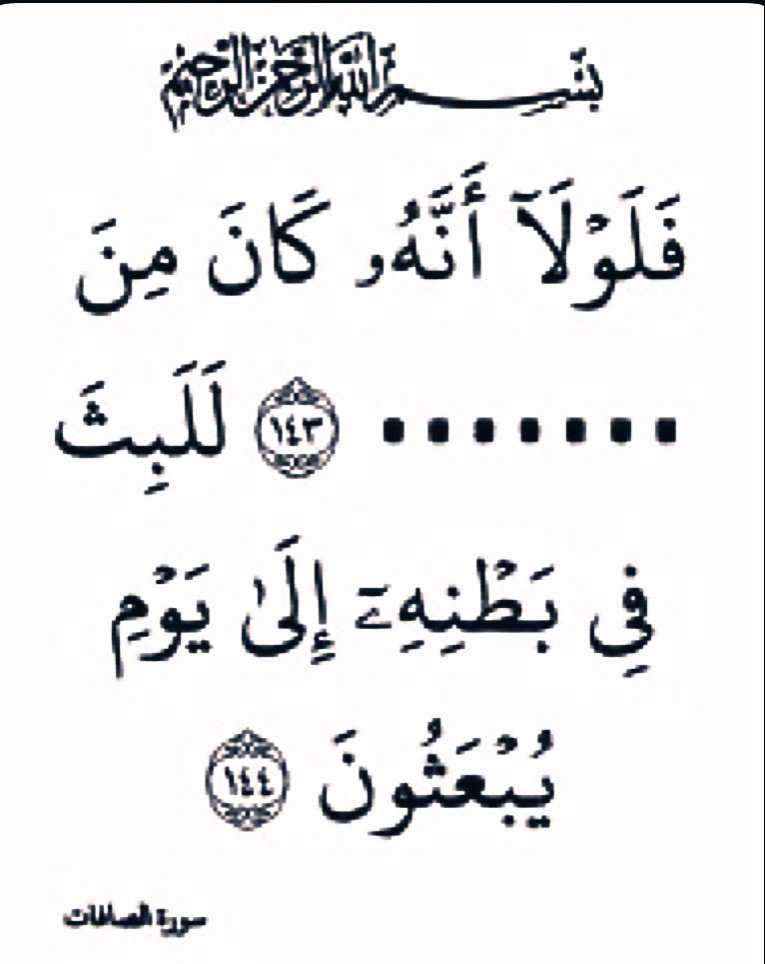 بِسْمِ اللَّهِ الرَّحْمَٰنِ الرَّحِيمِ
فَلَوْلَآ أَنَّهُۥ كَانَ مِنَ
....... ١٤٣ لَلَبِثَ
فِى بَطْنِهِۦٓ إِلَىٰ يَوْمِ
يُبْعَثُونَ ١٤٤
سورة الصافات